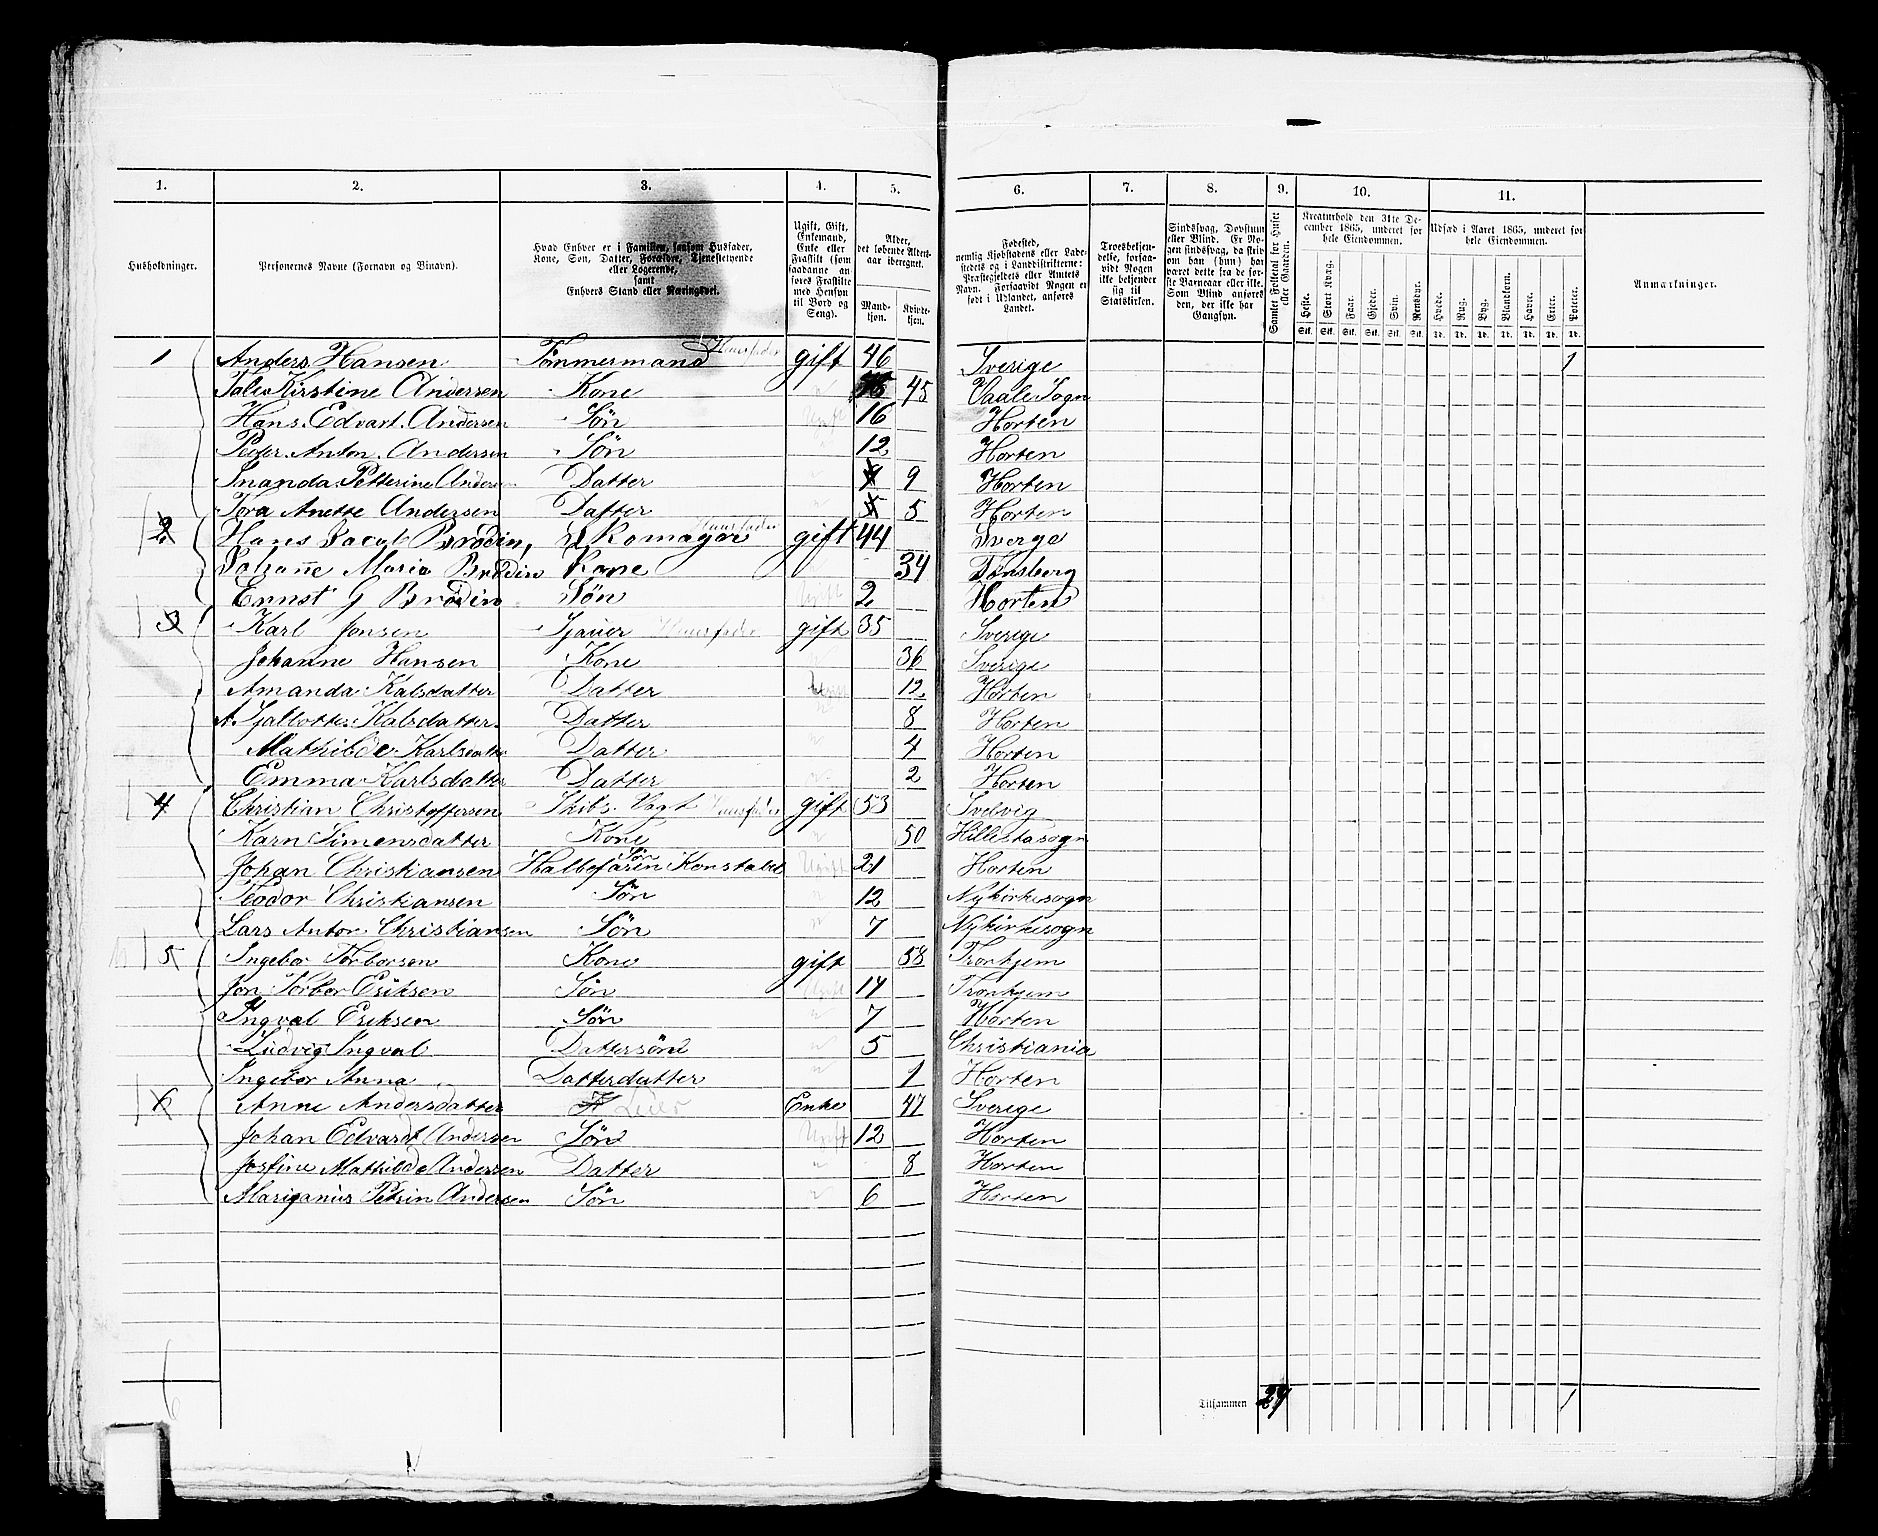 1. 2. 3. 4. 5. 6. 7. 8. 9. 10. 11.
Husholdninger.
Personernes Navne (Fornavn og Binavn).
Hvad Enhver er i Familien, saasom Husfader, Kone, Søn, Datter, Forældre, Tjenestetyende eller Logerende, samt Enhvers Stand eller Næringsvei.
Ugift, Gift, Enkemand, Enke eller Fraskilt (som saadanne anføres Fraskilte med Hensyn til Bord og Seng).
Alder, det løbende Alders-aar iberegnet.
Mand-kjøn. Kvinde-kjøn.
Fødested, nemlig Kjøbstadens eller Ladestedets og i Landdistrikterne: Præstegjeldets eller Amtets Navn. Forsaavidt Nogen er født i Udlandet, anføres Landet.
Troesbekjendelse, forsaavidt Nogen ikke bekjender sig til Statskirken.
Sindssvag, Døvstum eller Blind. Er Nogen sindssvag, da skrives om han (hun) har været dette fra de første Barneaar eller ikke. Som Blind anføres den, der ikke har Gangsyn.
Samlet Folketal for Huset eller Gaarden.
Kreaturhold den 31te December 1865, underet for hele Eiendommen.
Heste. Stort Kvæg. Faar. Gjeder. Svin. Rensdyr.
Stk. Stk. Stk. Stk. Stk. Stk.
Udsæd i Aaret 1865, underet for hele Eiendommen.
Hvede. Rug. Byg. Blandkorn. Havre. Erter. Poteter.
Anmærkninger.
1 Anders Hansen Tømmermand Huusfader gift 46 Sverige 1
Kirstine Andersen Kone 45 Vaale Sogn
Hans Edvart Andersen Søn Ugift 16 Horten
Peder Anton Andersen Søn 12 Horten
Petterine Andersen Datter 9 Horten
Tora Anette Andersen Datter 5 Horten
2 Hans Jacob Brodin, Skomager Huusfader gift 44 Sverge
Johanne Maria Brodin Kone 34 Tønsberg
Ernst G Brodin Søn Ugift 2 Horten
3 Karl Jonsen Huusfader gift 35 Sverige
Johanne Hansen Kone 36 Sverige
Amanda Kalsdatter Datter 12 Horten
A. Sjallotte Kalsdatter Datter 8 Horten
Mathilde Karlsdatter Datter 4 Horten
Emma Karlsdatter Datter 2 Horten
4 Christian Christoffersen Skibs Vagt Huusfader gift 53 Svelvig
Karn Simensdatter Kone 50 Hillestasogn
Johan Christiansen Søn Konstabel Ugift 21 Horten
Teodor Christiansen Søn 12 Nykirkesogn
Lars Anton Christiansen Søn 7 Nykirkesogn
5 Ingebor Torborsen Kone gift 58 Tronhjem
Jon Torbor Eriksen Søn Ugift 14 Tronhjem
Ingval Eriksen Søn 7 Horten
Ludvig Ingval Dattersøn 5 Christiania
Ingebor Anna Datterdatter 1 Horten
6 Anne Andersdatter Enke 47 Sverige
Johan Edvard Andersen Søn Ugift 12 Horten
Jostine Mathilde Andersen Datter 8 Horten
Petrin Andersen Søn 6 Horten
Tilsammen 29 1
6